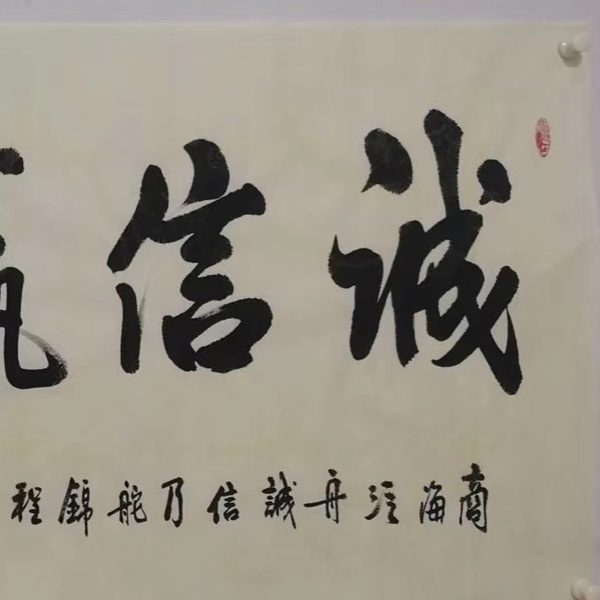 诚信
商海泛舟誠信乃舵錦程